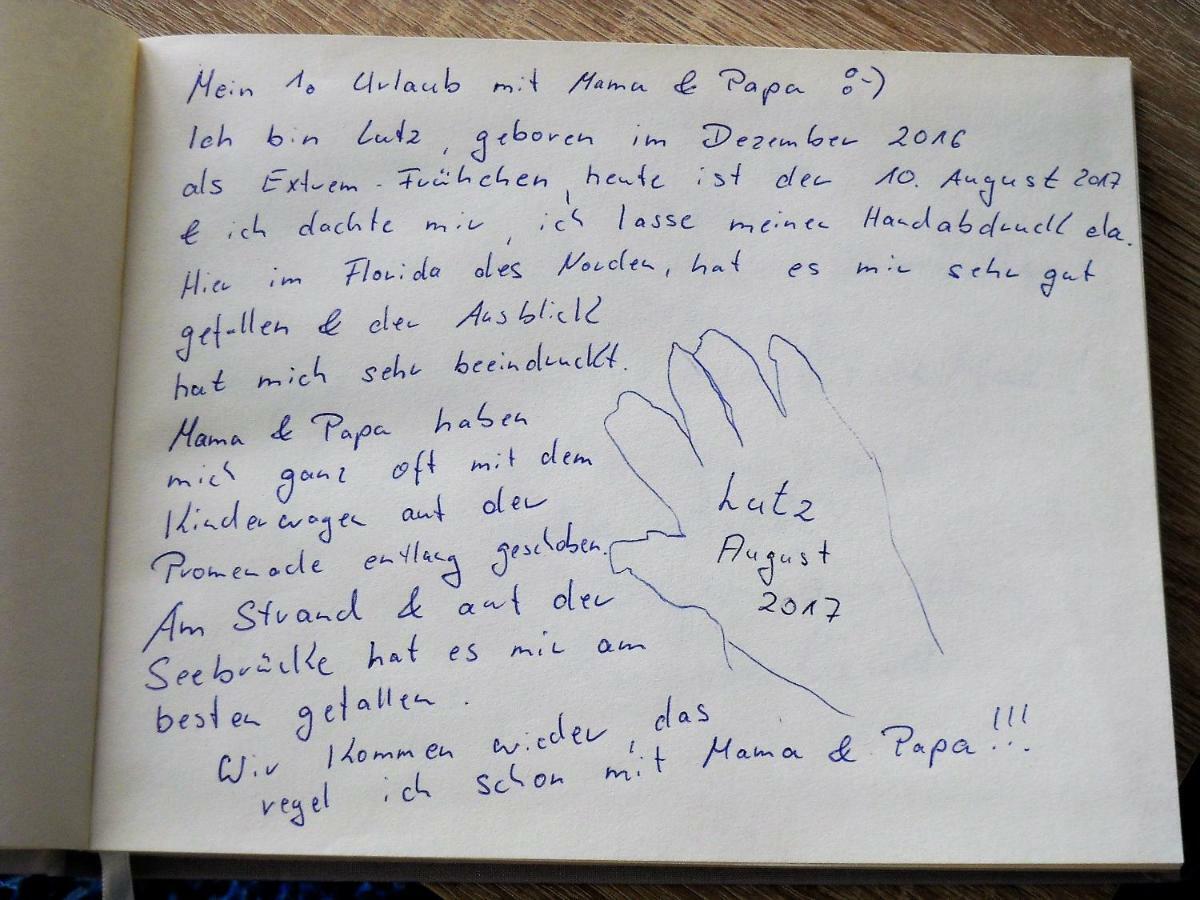 Mein 1. Urlaub mit Mama & Papa :-)
Ich bin Lutz, geboren im Dezember 2016
als Extrem-Frühchen, heute ist der 10. August 2017
& ich dachte mir, ich lasse meinen Handabdruck da.
Hier im Florida des Norden, hat es mir sehr gut
gefallen & der Ausblick
hat mich sehr beeindruckt.
Mama & Papa haben
mich ganz oft mit dem
Kinderwagen auf der
Promenade entlang geschoben.
Am Strand & auf der
Seebrücke hat es mir am
besten gefallen.
Wir kommen wieder, das
regel ich schon mit Mama & Papa!!!
Lutz
August
2017